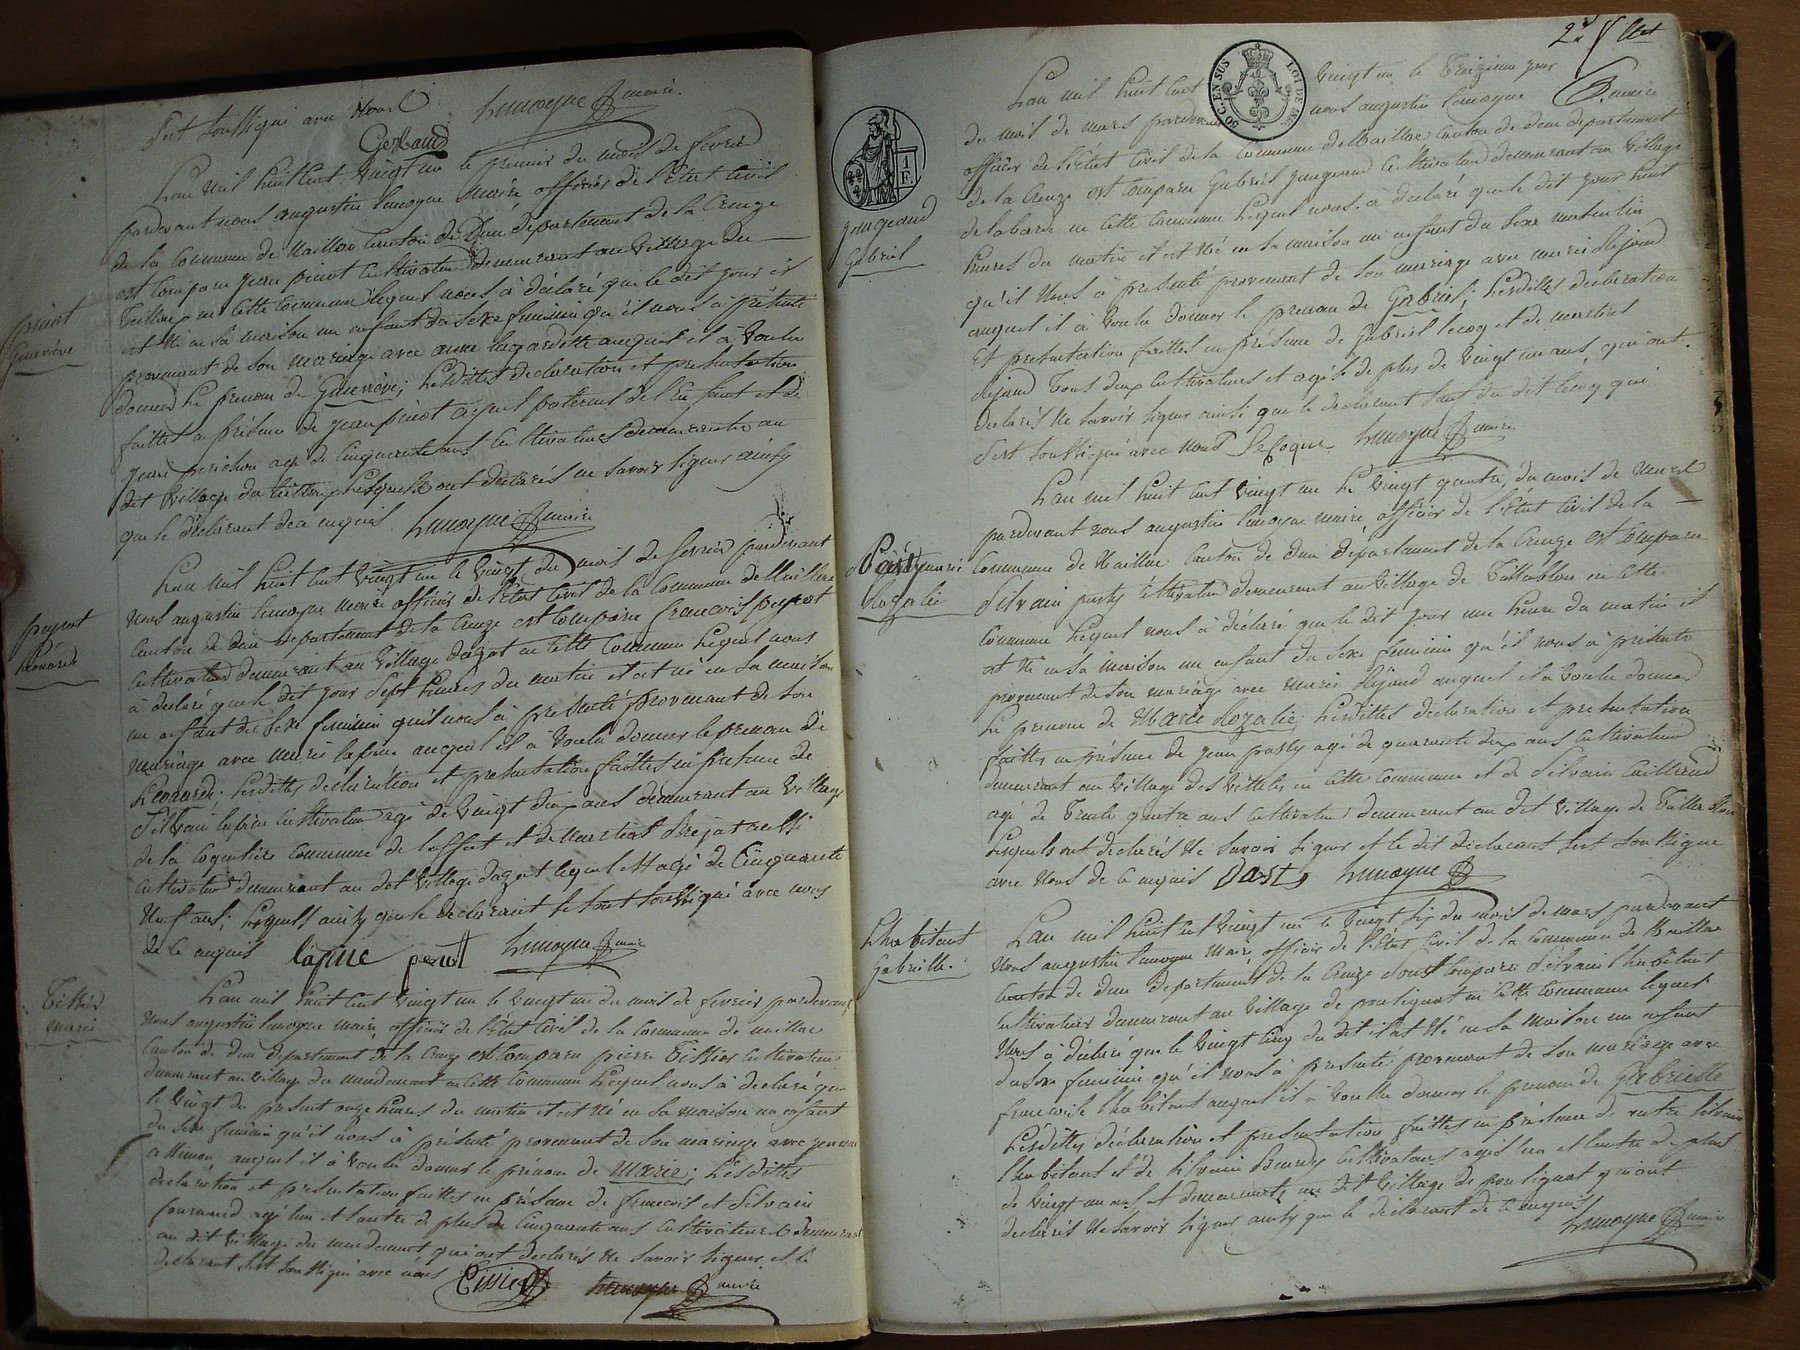 s'est soussigné avec nous Lemoyne maire
Gerbaud
L'an mil huit cent vingt un le premier du mois de fevrier
pardevant nous augustin lemoyne maire officier de l'Etat Civil
de la Commune de Maillac Canton de dun departement de la Creuze
est Comparu jean pinot Cultivateur demeurant au village du
en cette Commune lequel nous à déclaré que le dit jour il
est né en sa maison un enfant du sexe feminin qu'il nous a présenté
provenant de son mariage avec anne lagardette auquel il à voulu
donner le prenom de Genevieve; lesdittes declaration et presentation
faittes en présence de jean pinot ayeul paternel de l'enfant et de
jean agé de Cinquante ans Cultivateurs demeurants au
dit village du lesquels ont declarés ne savoir signer ainsy
que le déclarant de ce enquis Lemoyne maire
pinot
Genevieve
L'an mil huit cent vingt un le vingt du mois de fevrier pardevant
nous augustin lemoyne maire officier de l'Etat Civil de la Commune de Maillac
Canton de dun departement de la Creuze est Comparu francois peyrot
Cultivateur demeurant au village dazat en cette Commune lequel nous
à declaré que le dit jour sept heures du matin il est né en sa maison
un enfant du sexe feminin qu'il nous à présenté provenant de son
mariage avec marie lapine auquel il à voulu donner le prenom de
Leonarde; lesdittes declaration et presentation faittes en presence de
Silvain lapine Cultivateur agé de vingt deux ans demeurant au village
de la Commune de lafat et de martial aussi
Cultivateur demeurant au dit village dazat lequel est agé de Cinquante
neuf ans; lesquels ainsy que le declarant se sont soussigné avec nous
de ce enquis lapine Lemoyne maire
peyrot
Léonarde
L'an mil huit cent vingt un le vingt un du mois de fevrier pardevant
nous augustin lemoyne maire officier de l'Etat Civil de la Commune de maillac
Canton de dun departement de la Creuze est Comparu pierre Tissier Cultivateur
demeurant au village du en cette Commune lequel nous à declaré que
le vingt du present onze heures du matin il est né en sa maison un enfant
du sexe feminin qu'il nous à présenté provenant de son mariage avec jeanne
auquel il à voulu donner le prénom de Marie; lesdittes
declaration et presentation faittes en présence de francois et Silvain
agé l'un et l'autre de plus de Cinquante ans Cultivateurs demeurant
au dit village du qui ont declarés ne savoir signer et le
declarant s'est soussigné avec nous Tissier Lemoyne maire
Tissier
marie
2e
50 C. EN SUS
LOI DE
1 F
L'an mil huit cent vingt un le treizieme jour
du mois de mars pardevant nous augustin lemoyne maire
officier de l'Etat Civil de la Commune de Maillac Canton de dun departement
de la Creuze est Comparu Gabriel Cultivateur demeurant au village
de en cette Commune lequel nous à declaré que le dit jour huit
heures du matin il est né en sa maison un enfant du sexe masculin
qu'il nous à presenté provenant de son mariage avec marie Dejoud
auquel il à voulu donner le prenom de Gabriel; lesdittes declaration
et presentation faittes en présence de Gabriel lecoq et de martial
dejoud tous deux Cultivateurs et agés de plus de vingt un ans, qui ont
declarés ne savoir signer ainsi que le declarant sauf du dit lecoq qui
s'est soussigné avec nous Lecoque Lemoyne maire
Gabriel
L'an mil huit cent vingt un le vingt quatre, du mois de mars
pardevant nous augustin lemoyne maire, officier de l'Etat Civil de la
Commune de Maillac Canton de dun departement de la Creuze est Comparu
Silvain pasty Cultivateur demeurant au village de en cette
Commune lequel nous à déclaré que le dit jour une heure du matin il
est né en sa maison un enfant du sexe feminin qu'il nous à présenté
provenant de son mariage avec marie Dejoud auquel il à voulu donner
le prenom de Marie Rozalie; lesdittes declaration et presentation
faittes en présence de jean pasty agé de quarante deux ans Cultivateur
demeurant au village des en cette Commune et de Silvain
agé de trente quatre ans Cultivateur demeurant au dit village de
lesquels ont declarés ne savoir signer et le dit declarant s'est soussigné
avec nous de ce enquis Pasty Lemoyne
Pasty marie
Rozalie
L'an mil huit cent vingt un le vingt six du mois de mars pardevant
nous augustin lemoyne maire, officier de l'Etat Civil de la Commune de Maillac
Canton de dun departement de la Creuze s'est Comparu Silvain lhabitant
Cultivateur demeurant au village de en cette Commune lequel
nous à déclaré que le vingt Cinq du dit il est né en sa maison un enfant
du sexe feminin qu'il nous à presenté provenant de son mariage avec
francoise lhabitant auquel il à voulu donner le prenom de Gabrielle
lesdittes déclaration et presentation faittes en présence de autre Silvain
lhabitant et de Silvain Cultivateurs agés l'un et l'autre de plus
de vingt un ans et demeurants au dit village de qui ont
declarés ne savoir signer ainsy que le declarant de ce enquis
Lemoyne maire
Lhabitant
Gabrielle.